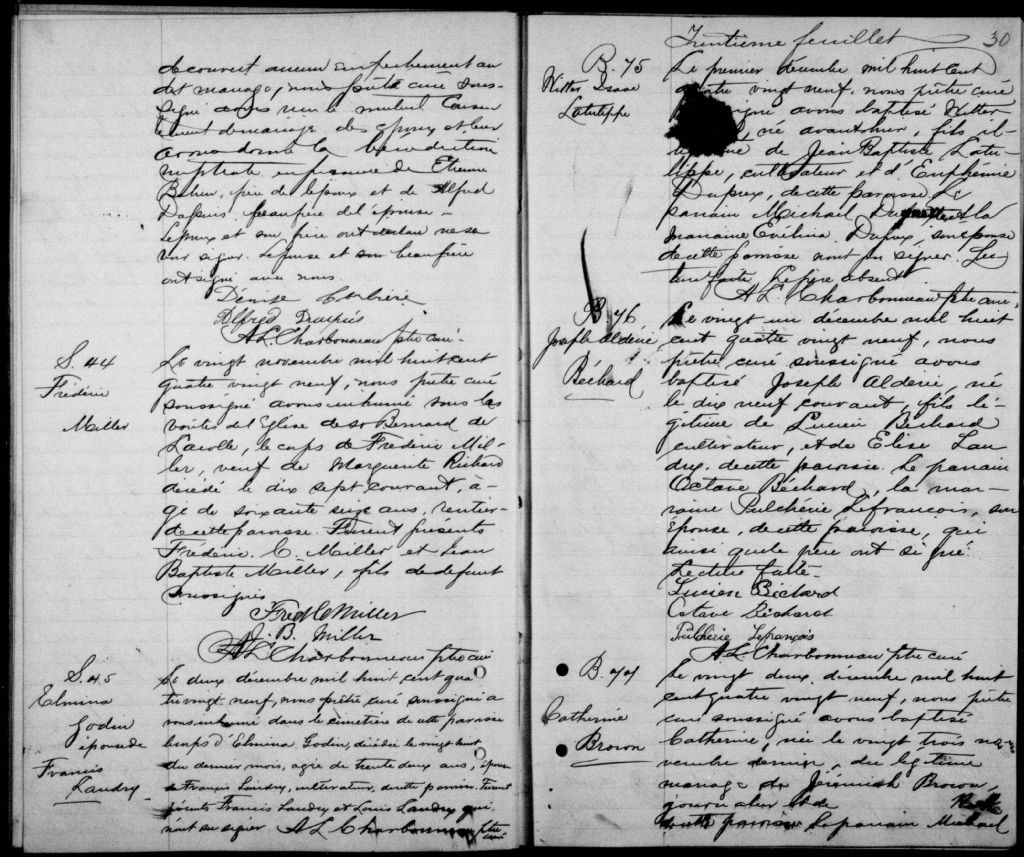 découvert aucun empêchement au
dit mariage, nous prêtre curé sous-
signé avons reçu le mutuel consen
tement de mariage des époux et leur
avons donné la bénédiction
nuptiale en présence de Etienne
frère de l'époux et de Alfred
Dupuis, beaufrère de l'épouse —
L'époux et son frère ont déclaré ne sa
voir signer. L'épouse et son beaufrère
ont signé avec nous.
Dénise Corbière
Alfred Dupuis
A L. Charbonneau ptre curé
S. 44
Frédéric
Miller
Le vingt novembre mil huit cent
quatre vingt neuf, nous prêtre curé
soussigné avons inhumé sous les
voûtes de l'Eglise de St Bernard de
Lacolle, le corps de Frédéric Mil-
ler, veuf de Marguerite Richard
décédé le dix sept courant, a-
gé de soixante seize ans, rentier
de cette paroisse. Furent présents
Frédéric C. Miller et Jean
Baptiste Miller, fils de defunt
soussignés
Fred C Miller
J. B. Miller
A L Charbonneau ptre curé
S. 45
Elmina
Godin
épouse de
Francis
Landry
Le deux décembre mil huit cent qua
tre vingt neuf, nous prêtre curé soussigné a
vons inhumé dans le cimetière de cette paroisse
le corps d'Elmina Godin, décédée le vingt huit
du dernier mois, agée de trente deux ans, épouse
de Francis Landry, cultivateur, de cette paroisse. Furent
présents Francis Landry et Louis Landry qui
n'ont su signer A L Charbonneau ptre
curé
Trentième feuillet 30
B. 75
Witter Isaac
Latulippe
Le premier décembre mil huit cent
quatre vingt neuf, nous prêtre curé
avons baptisé Witter
, né avant hier, fils lé-
gitime de Jean Baptiste Latu-
lippe, cultivateur et d'Euphémie
Dupuy, de cette paroisse Le
parrain Michael et la
marraine Evélina Dupuy, son épouse
de cette paroisse n'ont pu signer. Lec-
ture faite Le père absent
A L. Charbonneau ptre curé
B 76
Joseph Aldéric
Béchard
Le vingt un décembre mil huit
cent quatre vingt neuf, nous
prêtre curé soussigné avons
baptisé Joseph Alderic, né
le dix neuf courant, fils lé-
gitime de Lucien Béchard
cultivateur, et de Elise Lan
dry, de cette paroisse. Le parrain
Octave Béchard, la mar-
raine Pulchérie Lefrançois, son
épouse, de cette paroisse, qui
ainsi que le père ont signé.
Lecture faite-
Lucien Béchard
Octave Béchard
Pulchérie Lefrançois
A L. Charbonneau ptre curé
B. 77
Catherine
Brown
Le vingt deux décembre mil huit
cent quatre vingt neuf, nous prêtre
curé soussigné avons baptisé
Catherine, née le vingt trois no-
vembre dernier, du légitime
mariage de Jérémiah Brown,
journalier et de
de cette paroisse Le parrain Michael